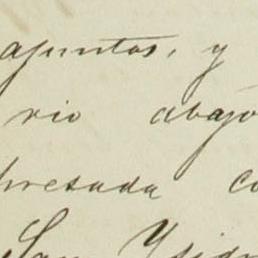 apuntos, y
rio abajo
presada co
San Ysidr